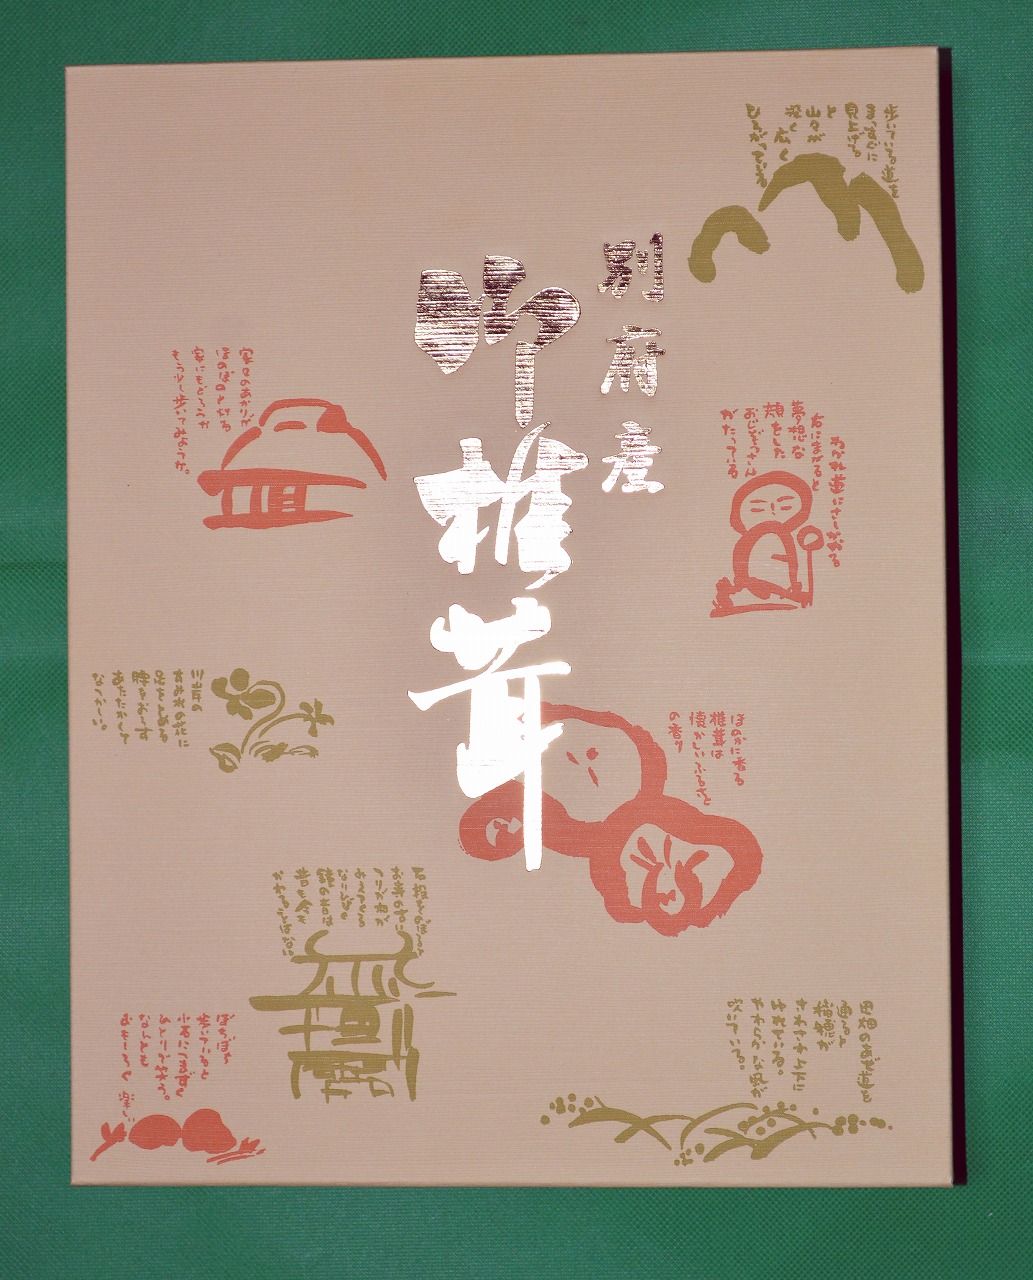 別府産
御椎茸
歩いている道を
まっすぐに
見上げる。
と
山々が
深く広く
ひろがっている
わかれ道にさしかかる
右にまがると
夢想な
顔をした
おじぞうさん
がたっている
家々のあかりが
ほのぼのと灯る
家にもどろうか
もう少し歩いてみようか。
川岸の
すみれの花に
足をとめる
腰をおろす
あたたかくて
なつかしい。
ほのかに香る
椎茸は
懐かしいふるさと
の香り
石段をのぼると
お寺の古い
つりがねが
みえてくる
なりひびく
鐘の音は
昔も今も
かわることはない。
田畑のあぜ道を
通ると
稲穂が
さわさわと
ゆれている。
やわらかな風が
吹いている。
ぽちぽち
歩いていると
小石につまずく
ひとりで笑う。
なんとも
おもしろく 楽しい